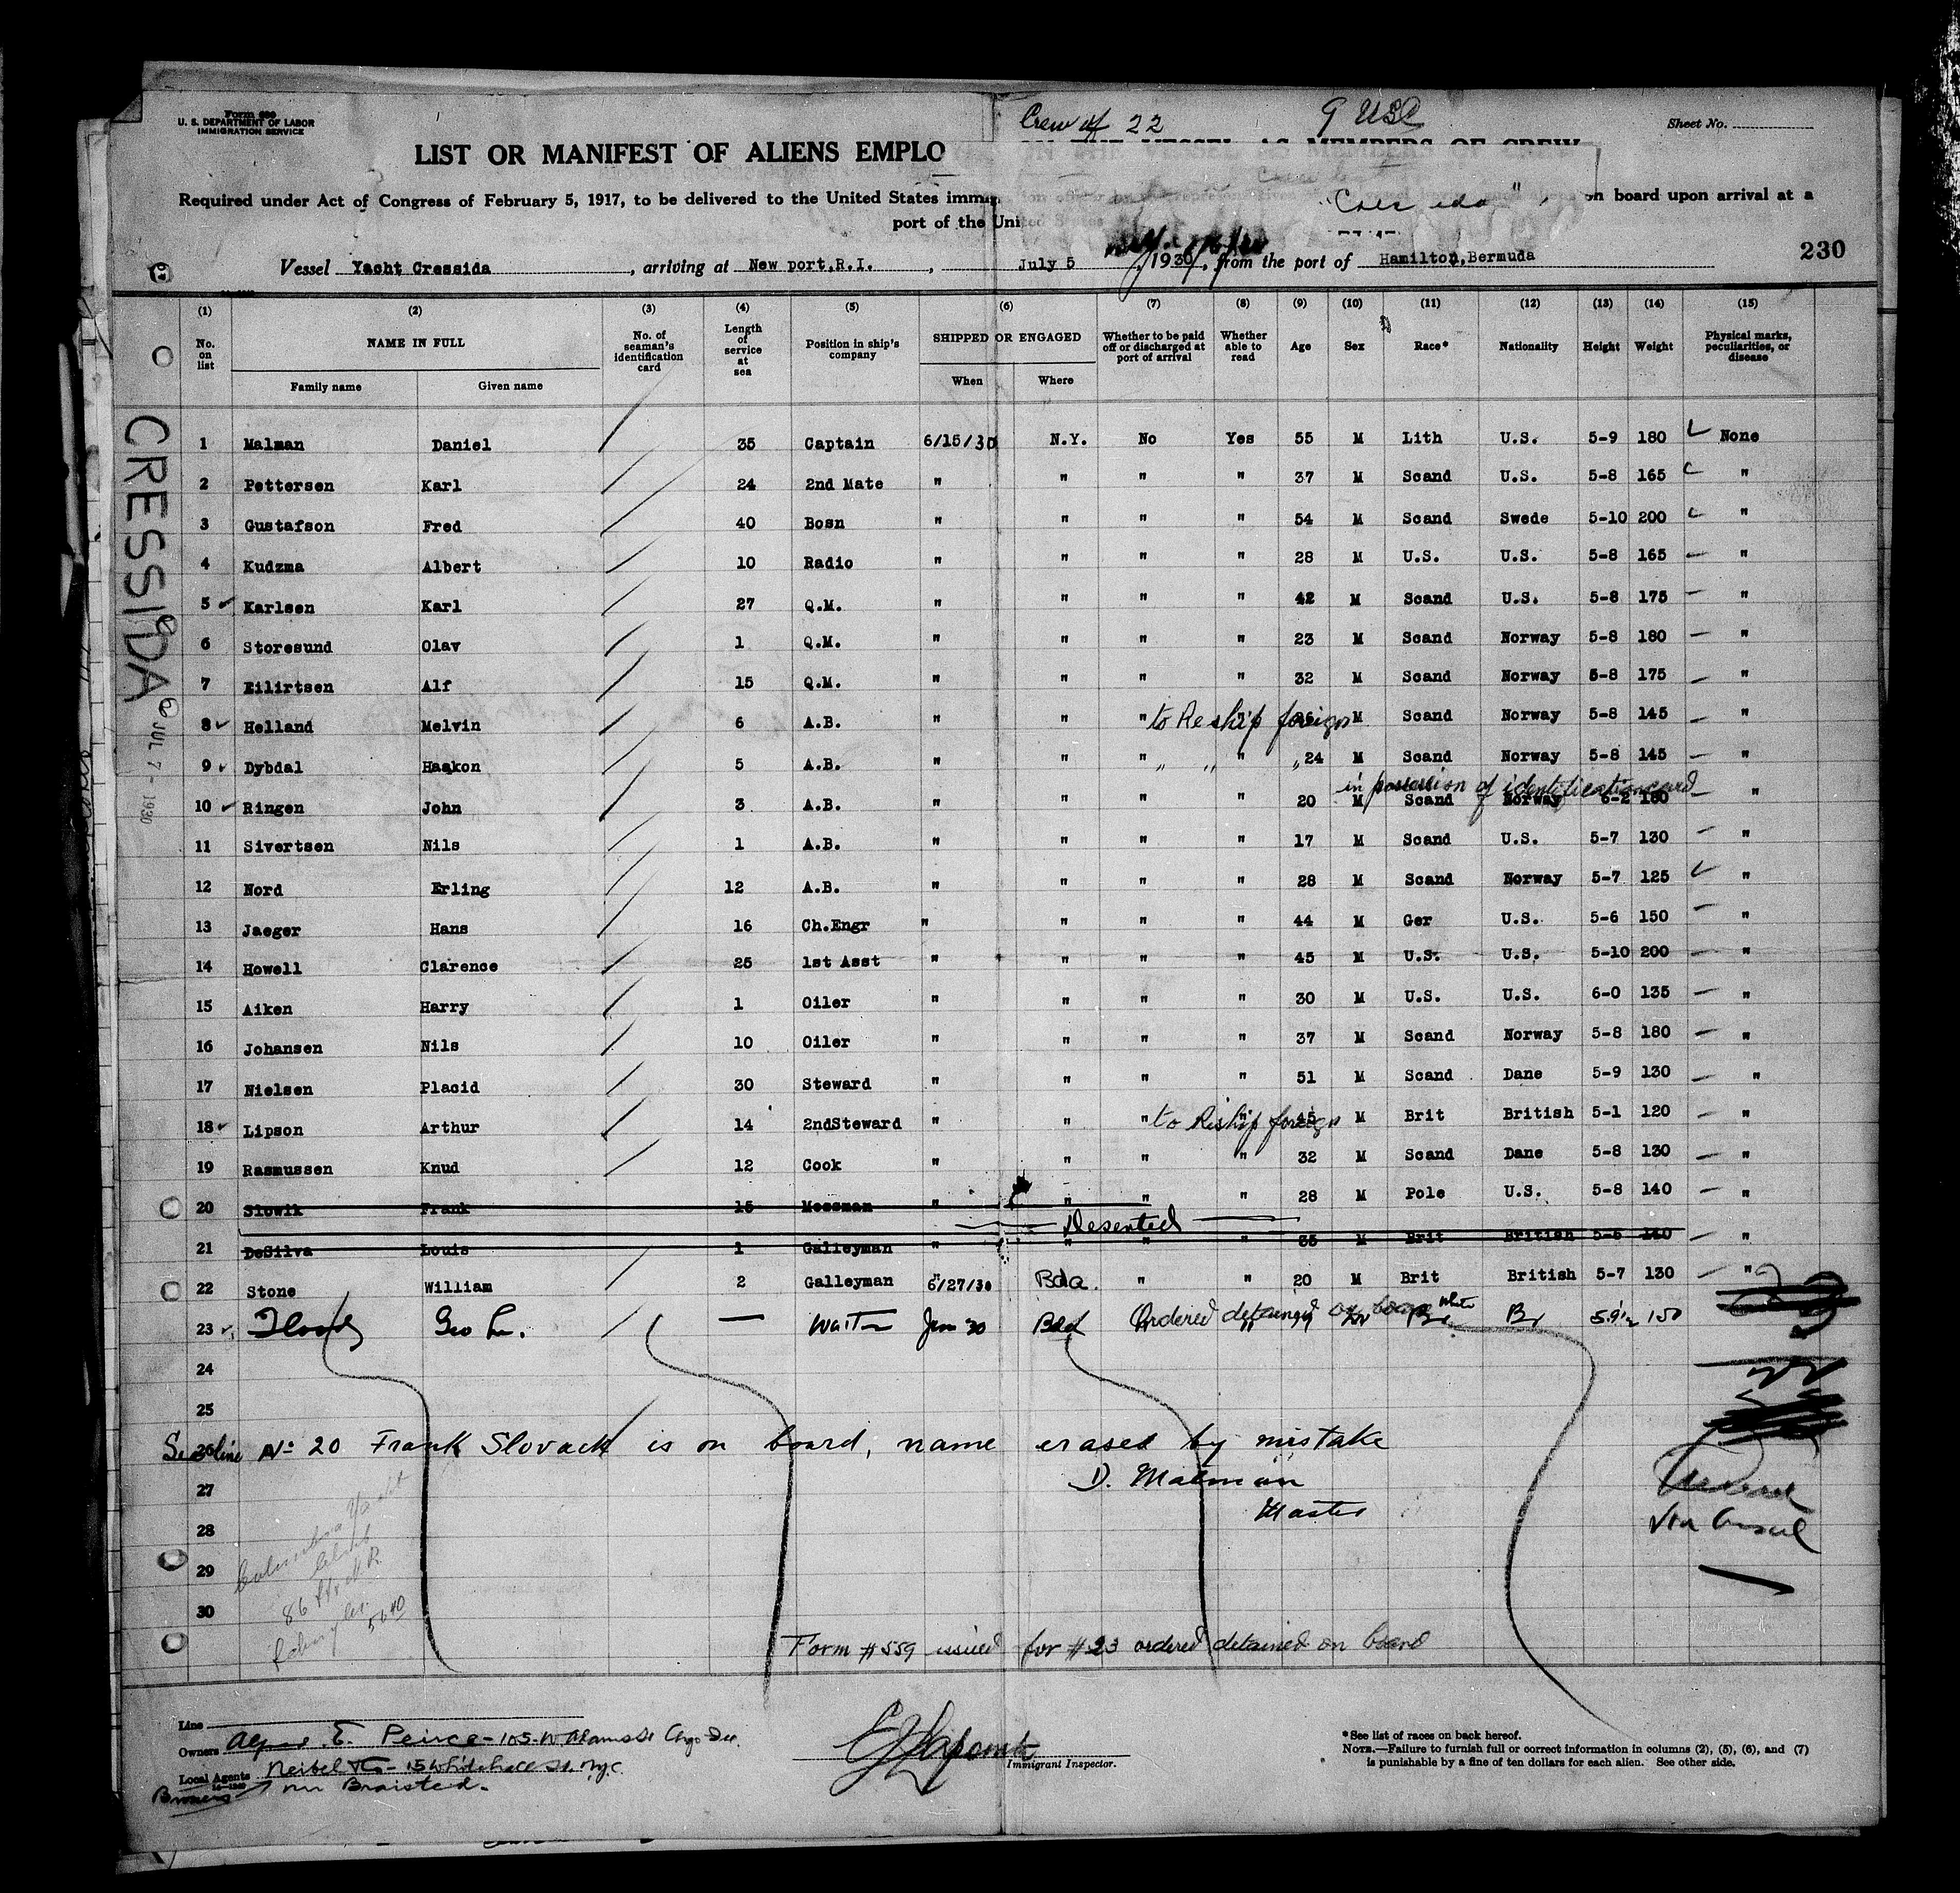 Form 680
U. S. DEPARTMENT OF LABOR
IMMIGRATION SERVICE
Crew of 22
9 USC
Sheet No.
LIST OR MANIFEST OF ALIENS EMPLO ON THE VESSEL AS MEMBERS OF CREW
Required under Act of Congress of February 5, 1917, to be delivered to the United States immig on board upon arrival at a
port of the United States
Vessel Yacht Cressida, arriving at New port,R.I., July 5, 1930, from the port of Hamilton,Bermuda
230
(1) (2) (3) (4) (5) (6) (7) (8) (9) (10) (11) (12) (13) (14) (15)
No. on list NAME IN FULL No. of seaman's identification card Length of service at sea Position in ship's company SHIPPED OR ENGAGED Whether to be paid off or discharged at port of arrival Whether able to read Age Sex Race* Nationality Height Weight Physical marks, peculiarities, or disease
Family name Given name When Where
CRESSIDA
JUL 7 - 1930
1 Malman Daniel 35 Captain 6/15/30 N.Y. No Yes 55 M Lith U.S. 5-9 180 None
2 Pettersen Karl 24 2nd Mate " " " " 37 M Scand U.S. 5-8 165 "
3 Gustafson Fred 40 Bosn " " " " 54 M Scand Swede 5-10 200 "
4 Kudzma Albert 10 Radio " " " " 28 M U.S. U.S. 5-8 165 "
5 Karlsen Karl 27 Q.M. " " " " 42 M Scand U.S. 5-8 175 "
6 Storesund Olav 1 Q.M. " " " " 23 M Scand Norway 5-8 180 "
7 Eilirtsen Alf 15 Q.M. " " " " 32 M Scand Norway 5-8 175 "
8 Helland Melvin 6 A.B. " " " to Reship foreign M Scand Norway 5-8 145 "
9 Dybdal Haakon 5 A.B. " " " " 24 M Scand Norway 5-8 145 "
in possession of identification card
10 Ringen John 3 A.B. " " " " 20 M Scand Norway 6-2 180 "
11 Sivertsen Nils 1 A.B. " " " " 17 M Scand U.S. 5-7 130 "
12 Nord Erling 12 A.B. " " " " 28 M Scand Norway 5-7 125 "
13 Jaeger Hans 16 Ch.Engr " " " " 44 M Ger U.S. 5-6 150 "
14 Howell Clarence 25 1st Asst " " " " 45 M U.S. U.S. 5-10 200 "
15 Aiken Harry 1 Oiler " " " " 30 M U.S. U.S. 6-0 135 "
16 Johansen Nils 10 Oiler " " " " 37 M Scand Norway 5-8 180 "
17 Nielsen Placid 30 Steward " " " " 51 M Scand Dane 5-9 130 "
18 Lipson Arthur 14 2ndSteward " " " to Reship foreign " 45 M Brit British 5-1 120 "
19 Rasmussen Knud 12 Cook " " " " 32 M Scand Dane 5-8 130 "
20 Slowik Frank 15 Messman " " " " 28 M Pole U.S. 5-8 140 "
Deserted
21 DeSilva Louis 1 Galleyman " " " " 35 M Brit British 5-6 140 "
22 Stone William 2 Galleyman 6/27/30 Bda. " " 20 M Brit British 5-7 130 "
23 Geo Waiter Jun 30 Bda Ordered detained on board White Br 5.9½ 150
24
25
26 See line No 20 Frank Slovack is on board, name erased by mistake
27 D. Malman
28 Master
29
30
Columbia Yacht
Club
86
Form #559 issued for #23 ordered detained on board
Line
Owners E. Peirce - 105-W. Adams St Chgo
Local Agents 15 Whitehall St. N.Y.C.
Immigrant Inspector.
*See list of races on back hereof.
NOTE.—Failure to furnish full or correct information in columns (2), (5), (6), and (7)
is punishable by a fine of ten dollars for each alien. See other side.